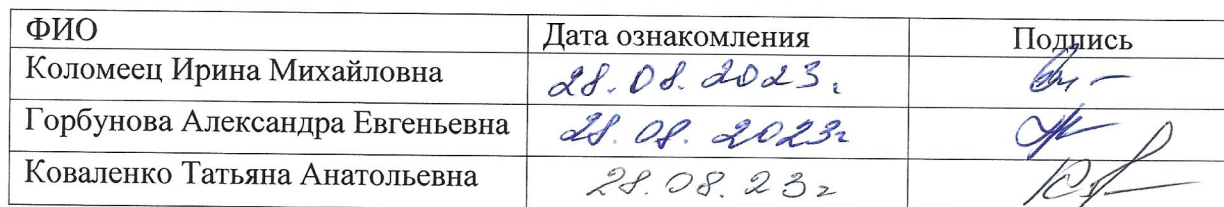 ФИО Дата ознакомления Подпись
Коломеец Ирина Михайловна 28.08.2023.
Горбунова Александра Евгеньевна 28.08.2023г
Коваленко Татьяна Анатольевна 28.08.23г